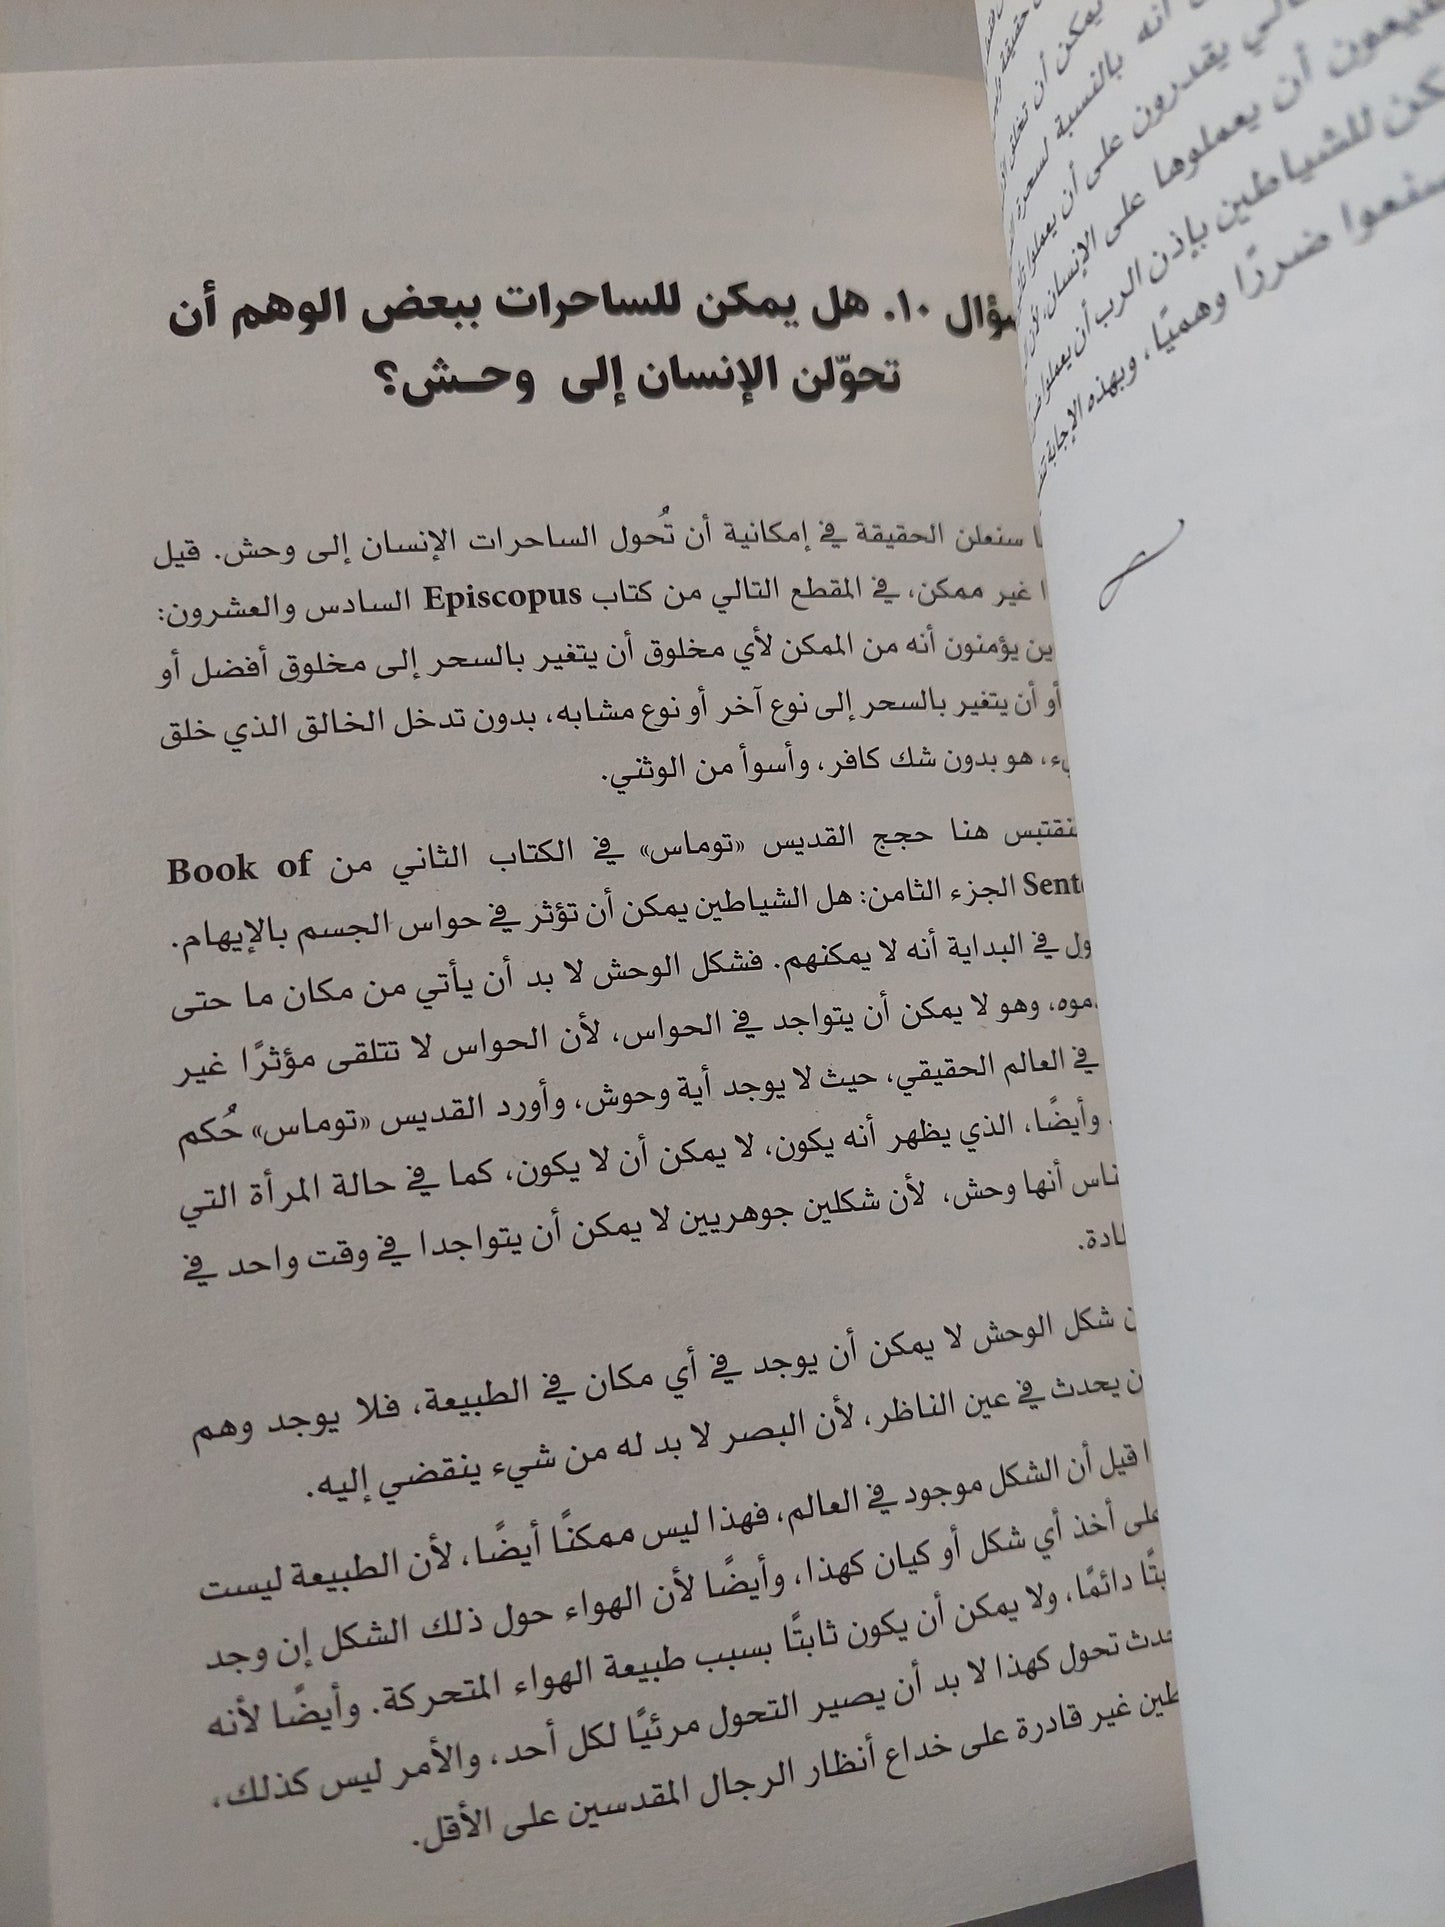 يمكن أن تخلق
أنه بالنسبة لسحرة
يقدرون على أن يعملوا
أن يعملوها على الإنسان، لأن
للشياطين بإذن الرب أن يعملوا
ضررًا وهميًا، وبهذه الإجابة
١٠. هل يمكن للساحرات ببعض الوهم أن
تحوّلن الإنسان إلى وحـش؟
سنعلن الحقيقة في إمكانية أن تُحول الساحرات الإنسان إلى وحش. قيل
غير ممكن، في المقطع التالي من كتاب Episcopus السادس والعشرون:
يؤمنون أنه من الممكن لأي مخلوق أن يتغير بالسحر إلى مخلوق أفضل أو
أو أن يتغير بالسحر إلى نوع آخر أو نوع مشابه، بدون تدخل الخالق الذي خلق
هو بدون شك كافر، وأسوأ من الوثني.
هنا حجج القديس «توماس» في الكتاب الثاني من Book of
الجزء الثامن: هل الشياطين يمكن أن تؤثر في حواس الجسم بالإيهام.
في البداية أنه لا يمكنهم. فشكل الوحش لا بد أن يأتي من مكان ما حتى
وهو لا يمكن أن يتواجد في الحواس، لأن الحواس لا تتلقى مؤثرًا غير
في العالم الحقيقي، حيث لا يوجد أية وحوش، وأورد القديس «توماس» حُكم
وأيضًا، الذي يظهر أنه يكون، لا يمكن أن لا يكون، كما في حالة المرأة التي
أنها وحش، لأن شكلين جوهريين لا يمكن أن يتواجدا في وقت واحد في
شكل الوحش لا يمكن أن يوجد في أي مكان في الطبيعة، فلا يوجد وهم
يحدث في عين الناظر، لأن البصر لا بد له من شيء ينقضي إليه.
قيل أن الشكل موجود في العالم، فهذا ليس ممكنًا أيضًا، لأن الطبيعة ليست
على أخذ أي شكل أو كيان كهذا، وأيضًا لأن الهواء حول ذلك الشكل إن وجد
دائمًا، ولا يمكن أن يكون ثابتًا بسبب طبيعة الهواء المتحركة. وأيضًا لأنه
تحول كهذا لا بد أن يصير التحول مرئيًا لكل أحد، والأمر ليس كذلك،
غير قادرة على خداع أنظار الرجال المقدسين على الأقل.